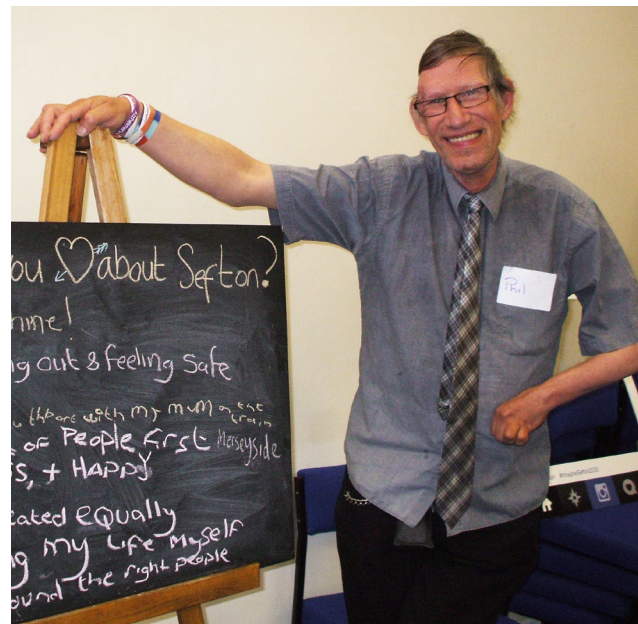 ou ♡ about Sefton?
hine!
ng out & feeling safe
with my mum on the
train
of People First Merseyside
SS, + HAPPY
eated equally
ng my Life Myself
ound the right people
Phil